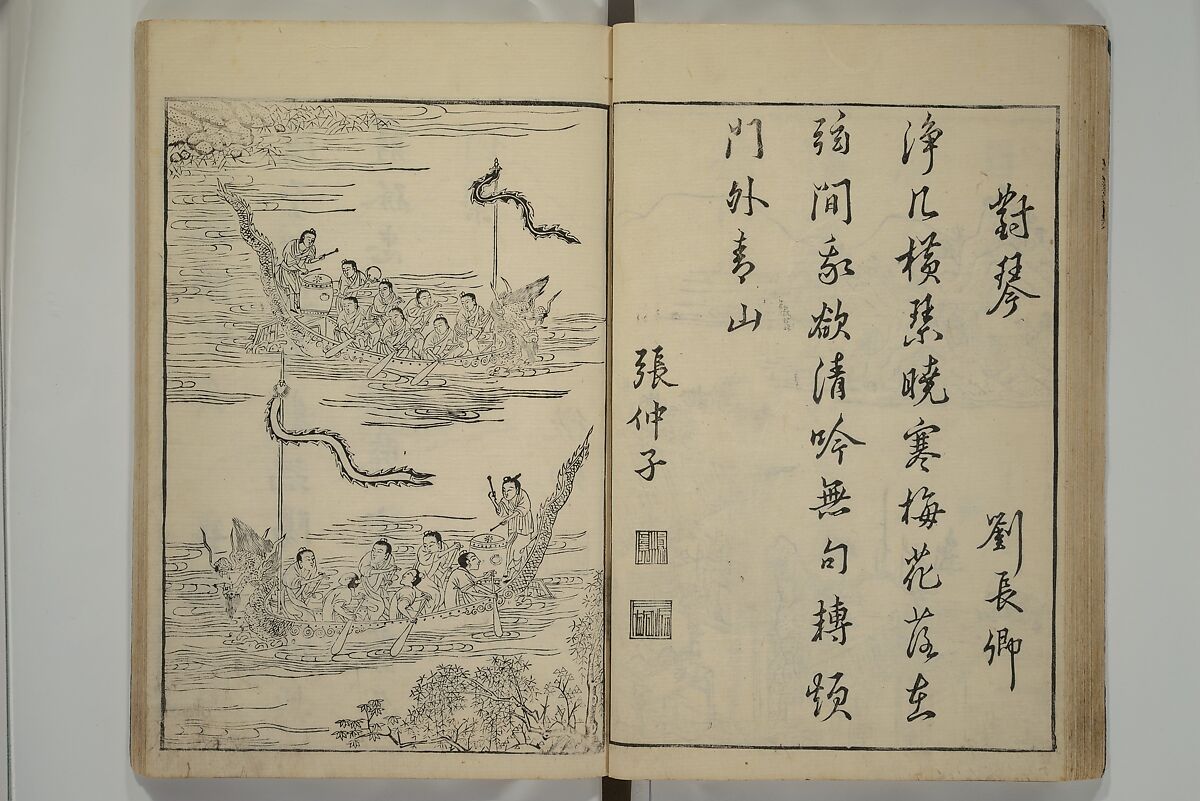 對琴 劉長卿
淨几橫琴曉寒梅花落在
弦間我欲清吟無句轉煩
門外青山
張仲子